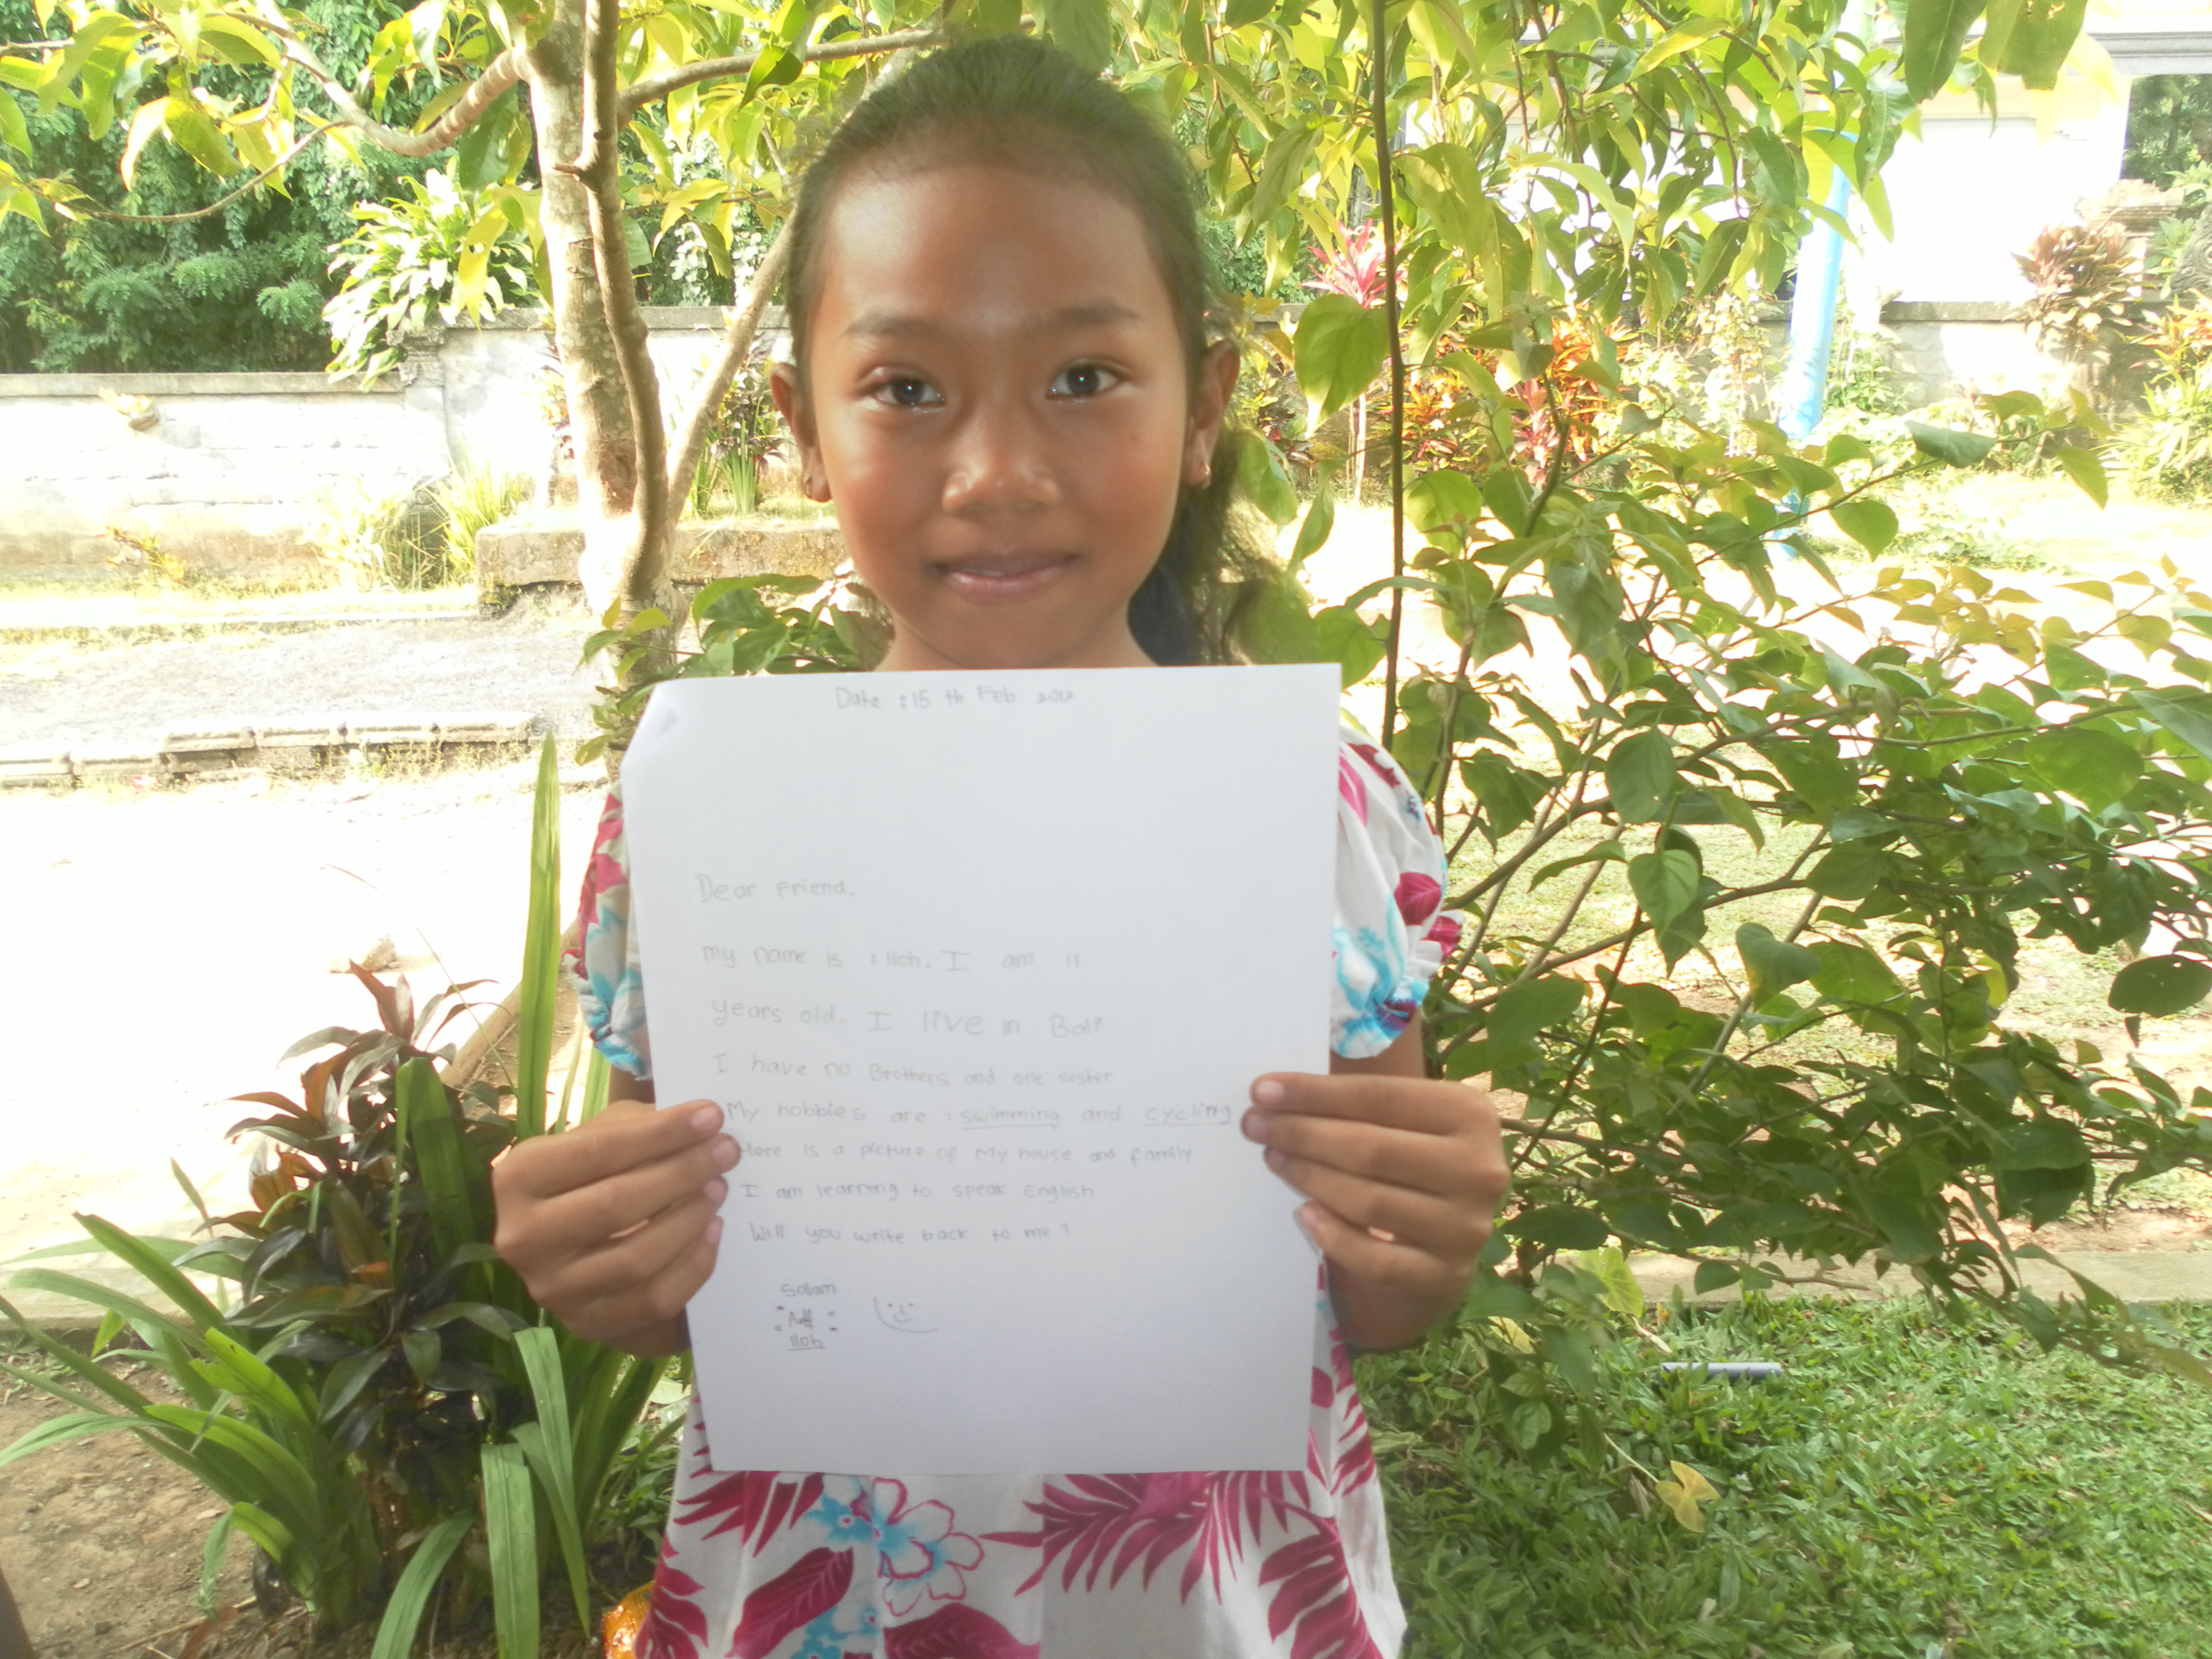 Date : 15 th Feb 2012
Dear Friend.
My name is : Iloh. I am 11
years old. I live in Bali
I have no Brothers and one sister
My hobbies are : swimming and cycling
Here is a picture of my house and family
I am learning to speak English
Will you write back to me?
Salam
Iloh